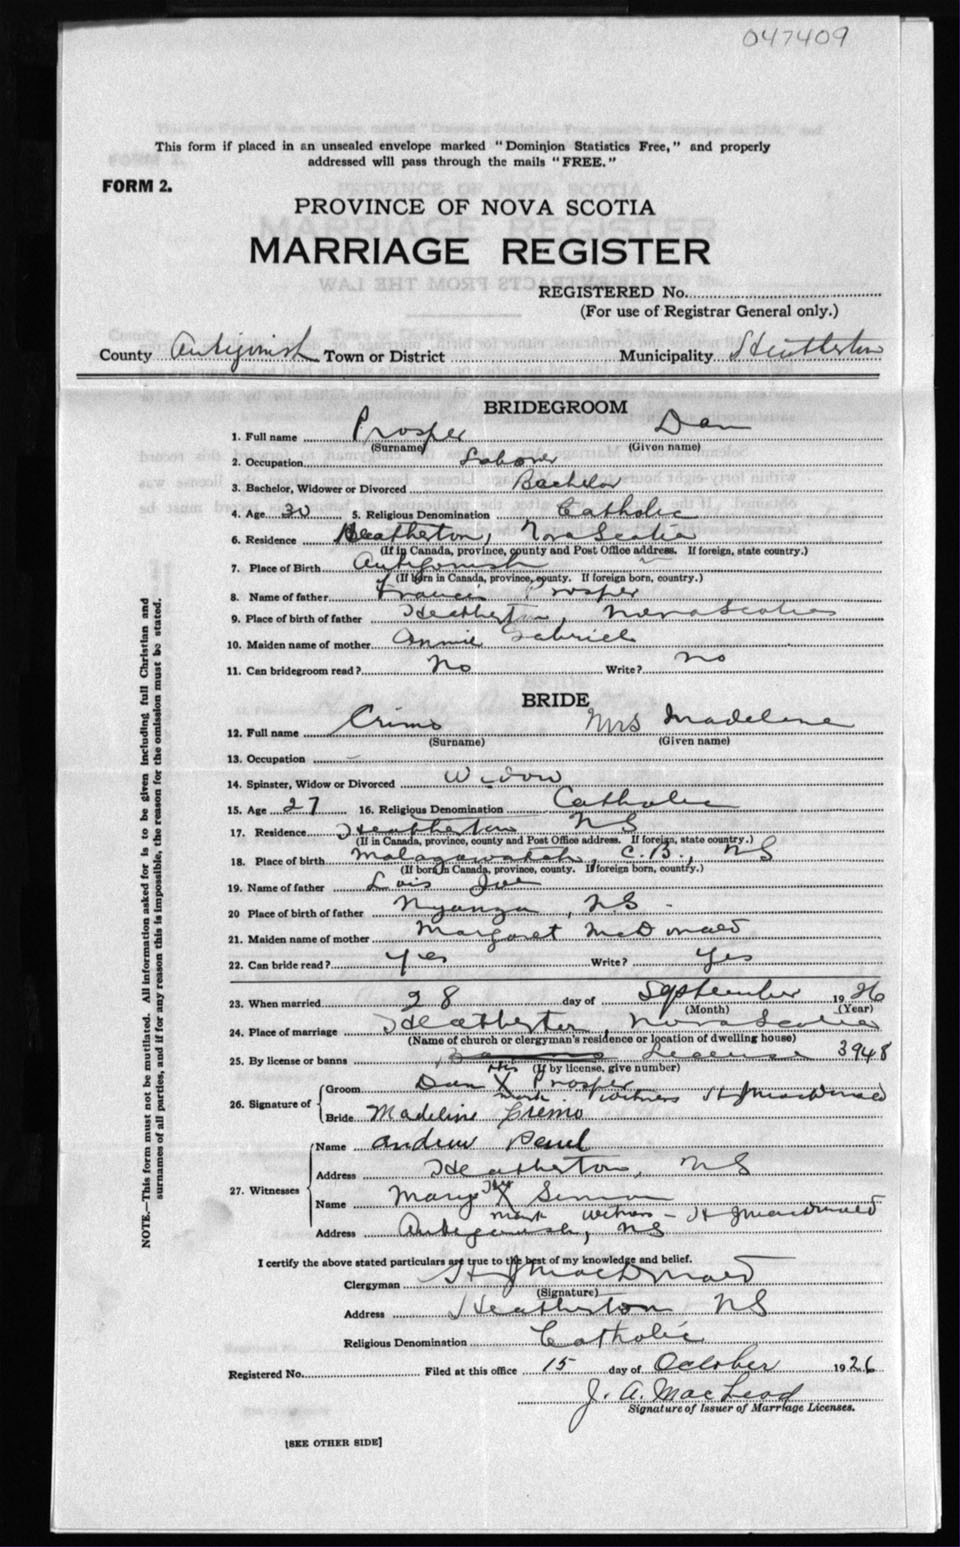 047409
This form if placed in an unsealed envelope marked "Dominion Statistics Free," and properly
addressed will pass through the mails "FREE."
FORM 2.
PROVINCE OF NOVA SCOTIA
MARRIAGE REGISTER
REGISTERED No.
(For use of Registrar General only.)
County Antigonish Town or District Municipality Heatherton
BRIDEGROOM
1. Full name Prosper Dan
(Surname) (Given name)
2. Occupation Laborer
3. Bachelor, Widower or Divorced Bachelor
4. Age 30 5. Religious Denomination Catholic
6. Residence Heatherton, Nova Scotia
(If in Canada, province, county and Post Office address. If foreign, state country.)
7. Place of Birth Antigonish
(If born in Canada, province, county. If foreign born, country.)
8. Name of father Francis Prosper
9. Place of birth of father Heatherton, Nova Scotia
10. Maiden name of mother Annie Gabriel
11. Can bridegroom read? No Write? No
BRIDE
12. Full name Crimo Mrs Madelene
(Surname) (Given name)
13. Occupation —
14. Spinster, Widow or Divorced Widow
15. Age 27 16. Religious Denomination Catholic
17. Residence Heatherton NS
(If in Canada, province, county and Post Office address. If foreign, state country.)
18. Place of birth Malagawatch, C.B., NS
(If born in Canada, province, county. If foreign born, country.)
19. Name of father Lois Joe
20 Place of birth of father Nyanza, N.S.
21. Maiden name of mother Margaret McDonald
22. Can bride read? Yes Write? Yes
23. When married 28 day of September 1926
(Month) (Year)
24. Place of marriage Heatherton, Nova Scotia
(Name of church or clergyman's residence or location of dwelling house)
25. By license or banns License 3948
(If by license, give number)
his
26. Signature of Groom Dan X Prosper
mark. Witness H J MacDonald
Bride Madeline Cremo
27. Witnesses Name Andrew Paul
Address Heatherton, NS
Name Mary her X Simon
mark Witness - H J MacDonald
Address Antigonish, NS
I certify the above stated particulars are true to the best of my knowledge and belief.
Clergyman H J MacDonald
(Signature)
Address Heatherton NS
Religious Denomination Catholic
Registered No. Filed at this office 15 day of October 1926
J. A. MacLeod
Signature of Issuer of Marriage Licenses.
[SEE OTHER SIDE]
NOTE.—This form must not be mutilated. All information asked for is to be given including full Christian and
surnames of all parties, and if for any reason this is impossible, the reason for the omission must be stated.